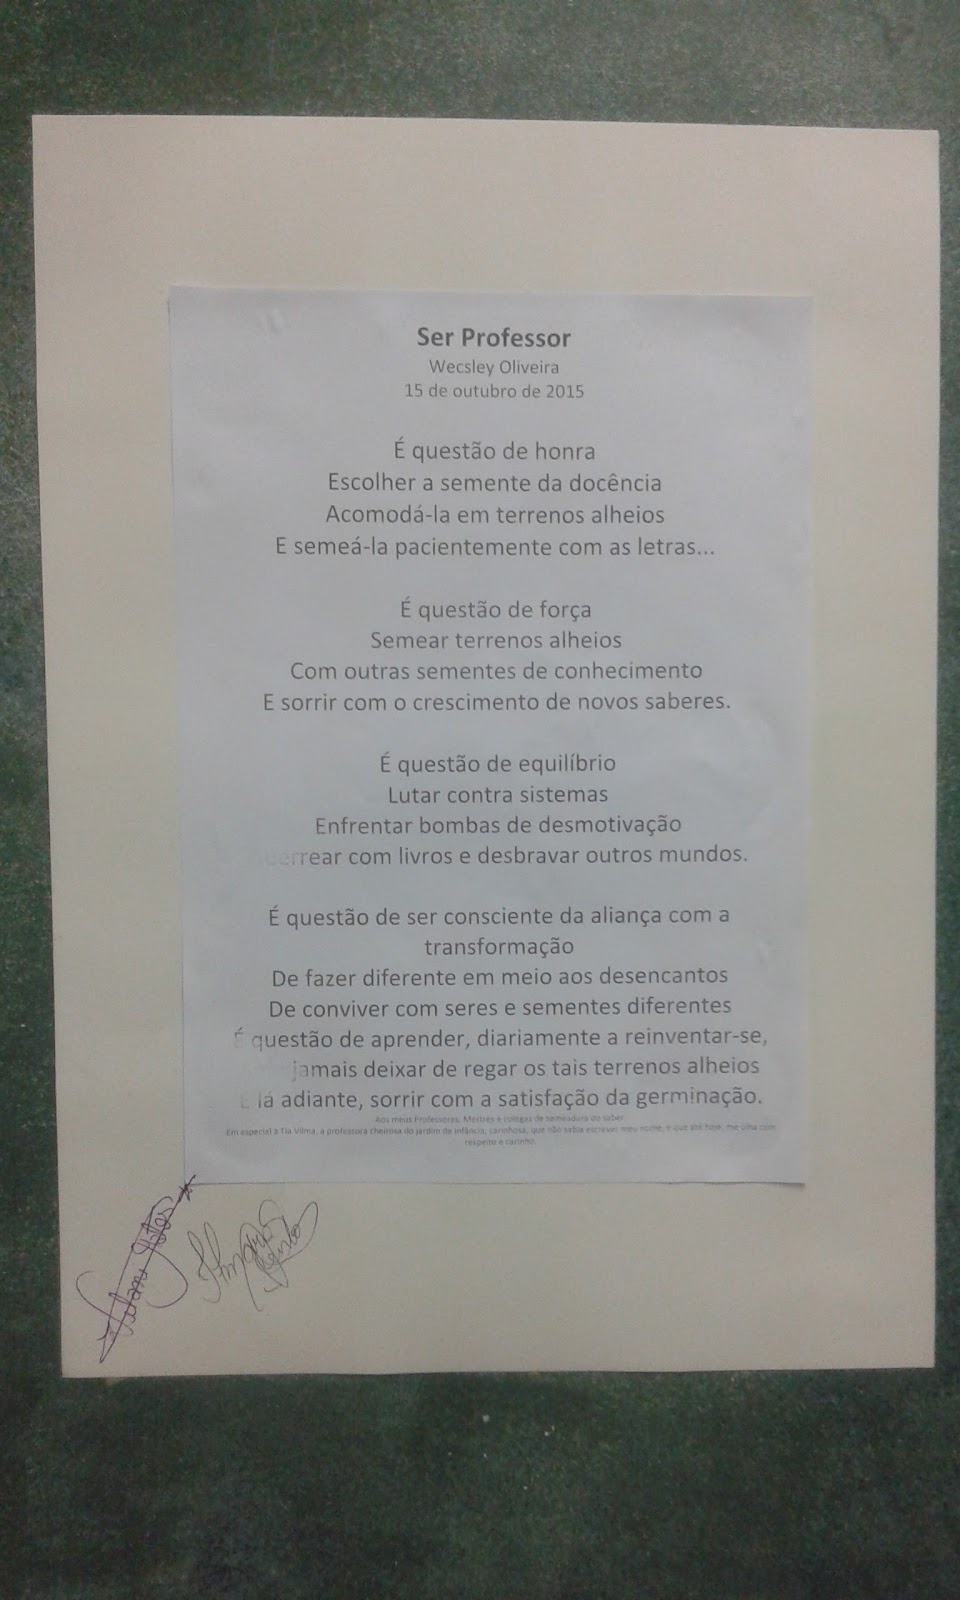 Ser Professor
Wecsley Oliveira
15 de outubro de 2015
É questão de honra
Escolher a semente da docência
Acomodá-la em terrenos alheios
E semeá-la pacientemente com as letras...
É questão de força
Semear terrenos alheios
Com outras sementes de conhecimento
E sorrir com o crescimento de novos saberes.
É questão de equilíbrio
Lutar contra sistemas
Enfrentar bombas de desmotivação
uerrear com livros e desbravar outros mundos.
É questão de ser consciente da aliança com a
transformação
De fazer diferente em meio aos desencantos
De conviver com seres e sementes diferentes
É questão de aprender, diariamente a reinventar-se,
jamais deixar de regar os tais terrenos alheios
E lá adiante, sorrir com a satisfação da germinação.
Aos meus Professores, Mestres e colegas de semeadura do saber.
Em especial à Tia Vilma, a professora cheirosa do jardim de infância, carinhosa, que não sabia escrever meu nome, e que até hoje, me olha com
respeito e carinho.